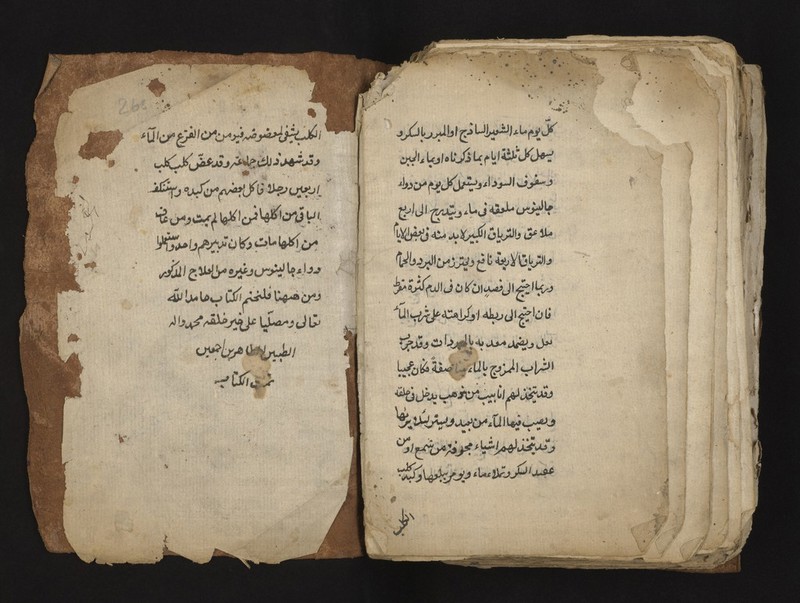 كل يوم ماء الشعير الساذج او المبزر بالسكر و
يسهل كل ثلثة ايام بما ذكرناه او بماء الجبن
و سفوف السوداء ويستعمل كل يوم من دواء
جالينوس ملعقة فى ماء ويتدرج الى اربع
ملاعق والترياق الكبير لابد منه فى بعض الايام
والترياق الاربعة نافع ويحترز من البرد والحمام
وربما احتيج الى فصد ان كان فى الدم كثرة مفرطة
فان احتيج الى ربطه او كراهته على شرب الماء
فعل ويضمد معدته بالمبردات وقد جرب
الشراب الممزوج بالماء مناصفة فكان عجيبا
وقد يتخذ لهم انابيب من ذهب يدخل فى حلقه
ويصب فيها الماء من بعيد ويستر لئلا يراها
وقد يتخذ لهم اشياء مجوفة من شمع او من
عقيد السكر وتملا ماء ويؤمر ببلعها وكبد كلب
الكلب
الكلب يشفى لمعضوضه فيومن من الفزع من الماء
وقد شهد ذلك جماعة وقد عض كلب كلب
اربعين رجلا فاكل بعضهم من كبده واستنكف
الباقى من اكلها فمن اكلها لم يمت ومن عاف
من اكلها مات وكان تدبيرهم واحد واستعملوا
دواء جالينوس وغيره من العلاج المذكور
ومن ههنا فلنختم الكتاب حامدا لله
تعالى ومصليا على خير خلقه محمد واله
الطيبين الطاهرين اجمعين
تمت الكتاب